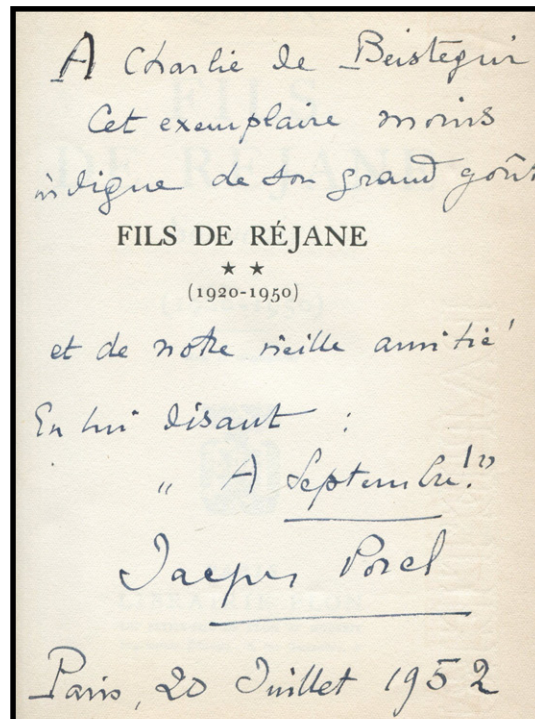 A Charlie de Beistegui
Cet exemplaire moins
indigne de son grand goût
FILS DE RÉJANE
★ ★
(1920-1950)
et de notre vieille amitié
En lui disant :
" A Septembre ! "
Jacques Porel
Paris, 20 Juillet 1952